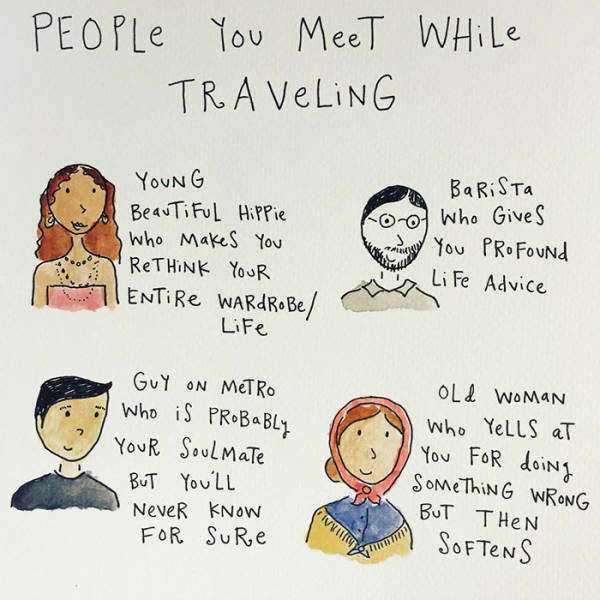 PEOPLE YOU MEET WHILE
TRAVELING
YOUNG
BEAUTIFUL HIPPIE
WHO MAKES YOU
RETHINK YOUR
ENTIRE WARDROBE/
LIFE
BARISTA
WHO GIVES
YOU PROFOUND
LIFE ADVICE
GUY ON METRO
WHO IS PROBABLY
YOUR SOULMATE
BUT YOU'LL
NEVER KNOW
FOR SURE
OLD WOMAN
WHO YELLS AT
YOU FOR doing
SOMETHING WRONG
BUT THEN
SOFTENS